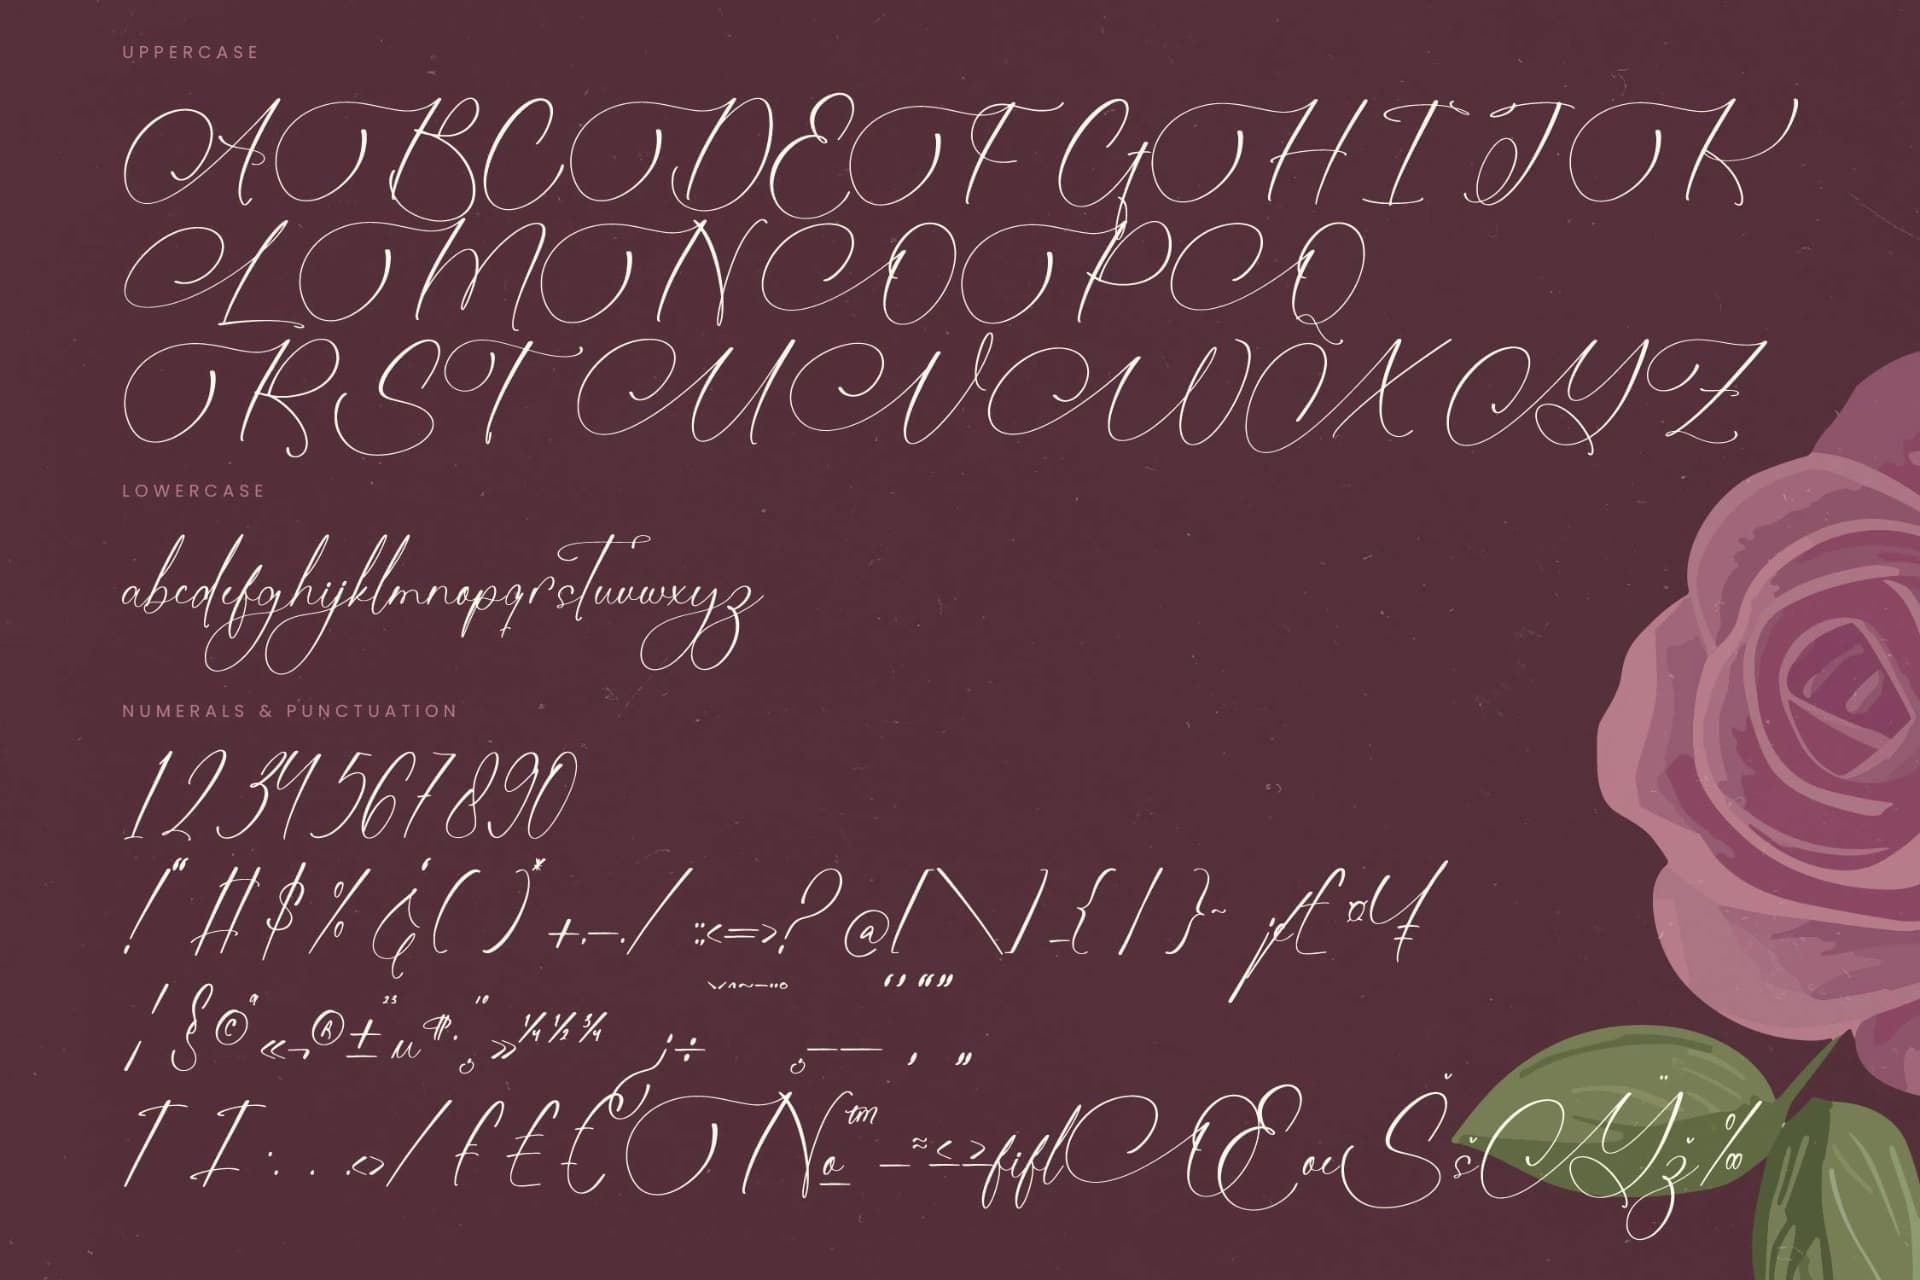 UPPERCASE
ABCDEFGHIJK
LMNOPQ
RSTUVWXYZ
LOWERCASE
abcdefghijklmnopqrstuvwxyz
NUMERALS & PUNCTUATION
1234567890
!"#$%&'()*+,-./:;<=>?@[\]_{|}~¡¢£¤¥
¦§©ª«¬®±²³µ¶·¸¹º»¼½¾¿÷
fifl Œœ Šš Ÿ ž ‰